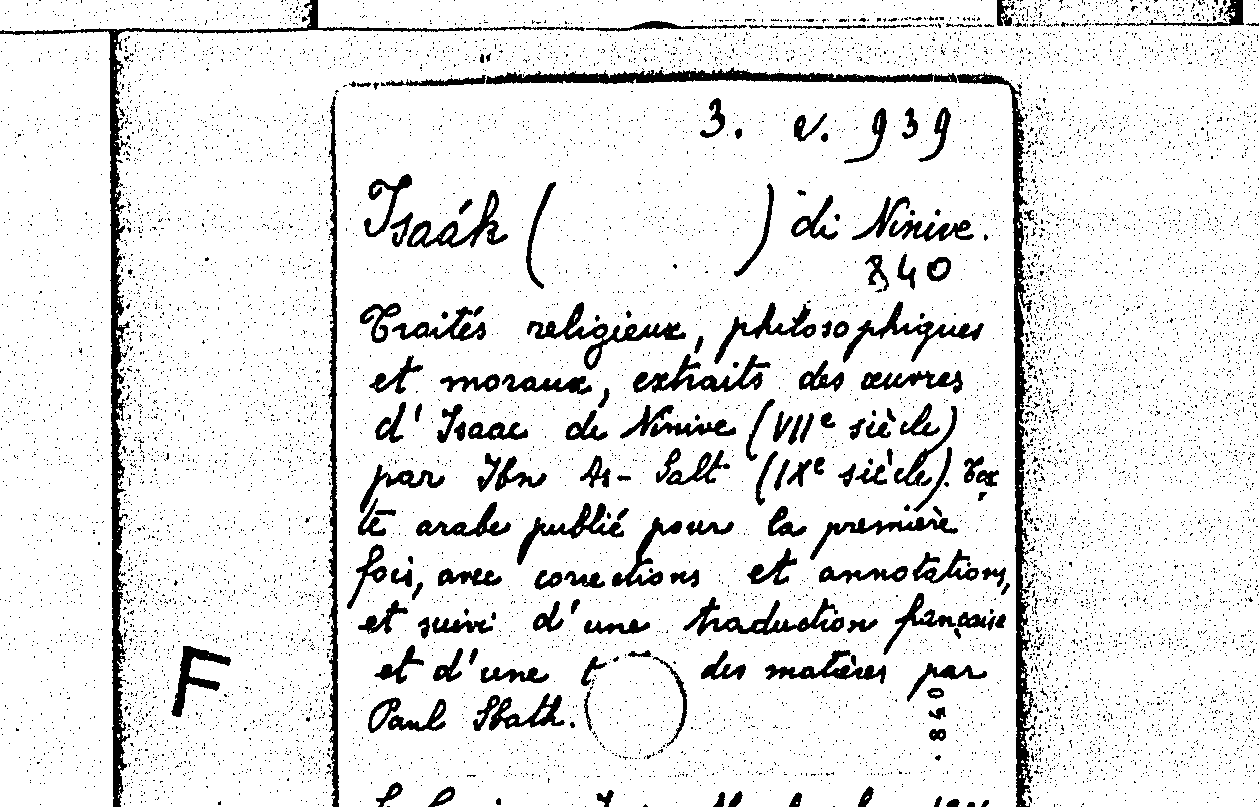 3. e. 939
Isaák ( ) de Ninive.
840
Traités religieux, philosophiques
et moraux, extraits des œuvres
d'Isaac de Ninive (VIIe siècle)
par Ibn As-Salt (IXe siècle). Tex
te arabe publié pour la première
fois, avec corrections et annotations,
et suivi d'une traduction française
et d'une t des matières par
Paul Sbath.
840
F